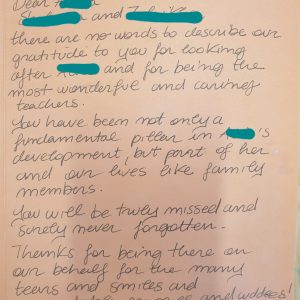 Dear
and
there are no words to describe our
gratitude to you for looking
after and for being the
most wonderful and caring
teachers.
You have been not only a
fundamental piller in 's
development, but part of her
and our lives like family
members.
You will be truly missed and
surely never forgotten.
Thanks for being there on
our behalf for the many
teers and smiles and
and